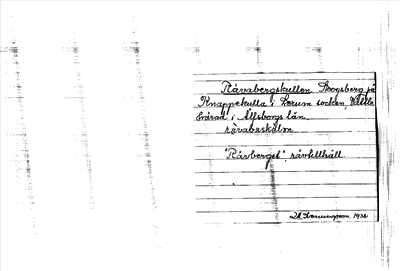 Rävabergskullen. Skogsberg på
Knappekulla i Lerum socken, Vättle
härad i Älfsborgs län.
"Rävberget", rävtillhåll
1932